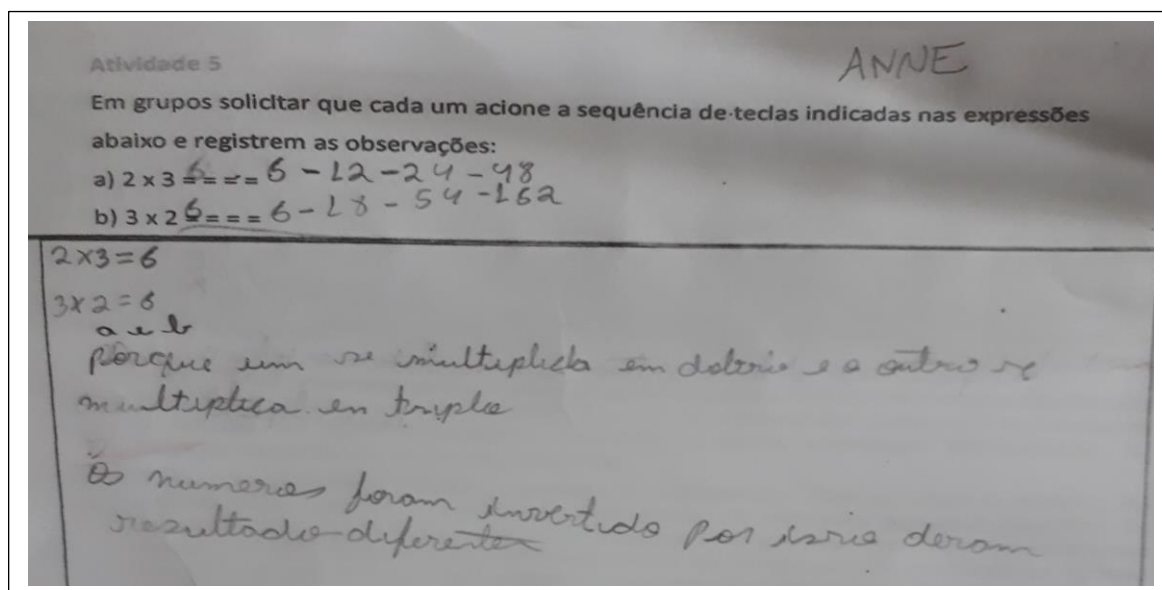 ANNE
Atividade 5
Em grupos solicitar que cada um acione a sequência de teclas indicadas nas expressões
abaixo e registrem as observações:
a) 2 x 3 = = = = 6 - 12 - 24 - 48
b) 3 x 2 = = = = 6 - 18 - 54 - 162
2x3=6
3x2=6
a e b
porque um se multiplica em e o outro se
multiplica en triplo
Os numeros foram invertido por isso deram
resultado diferentes